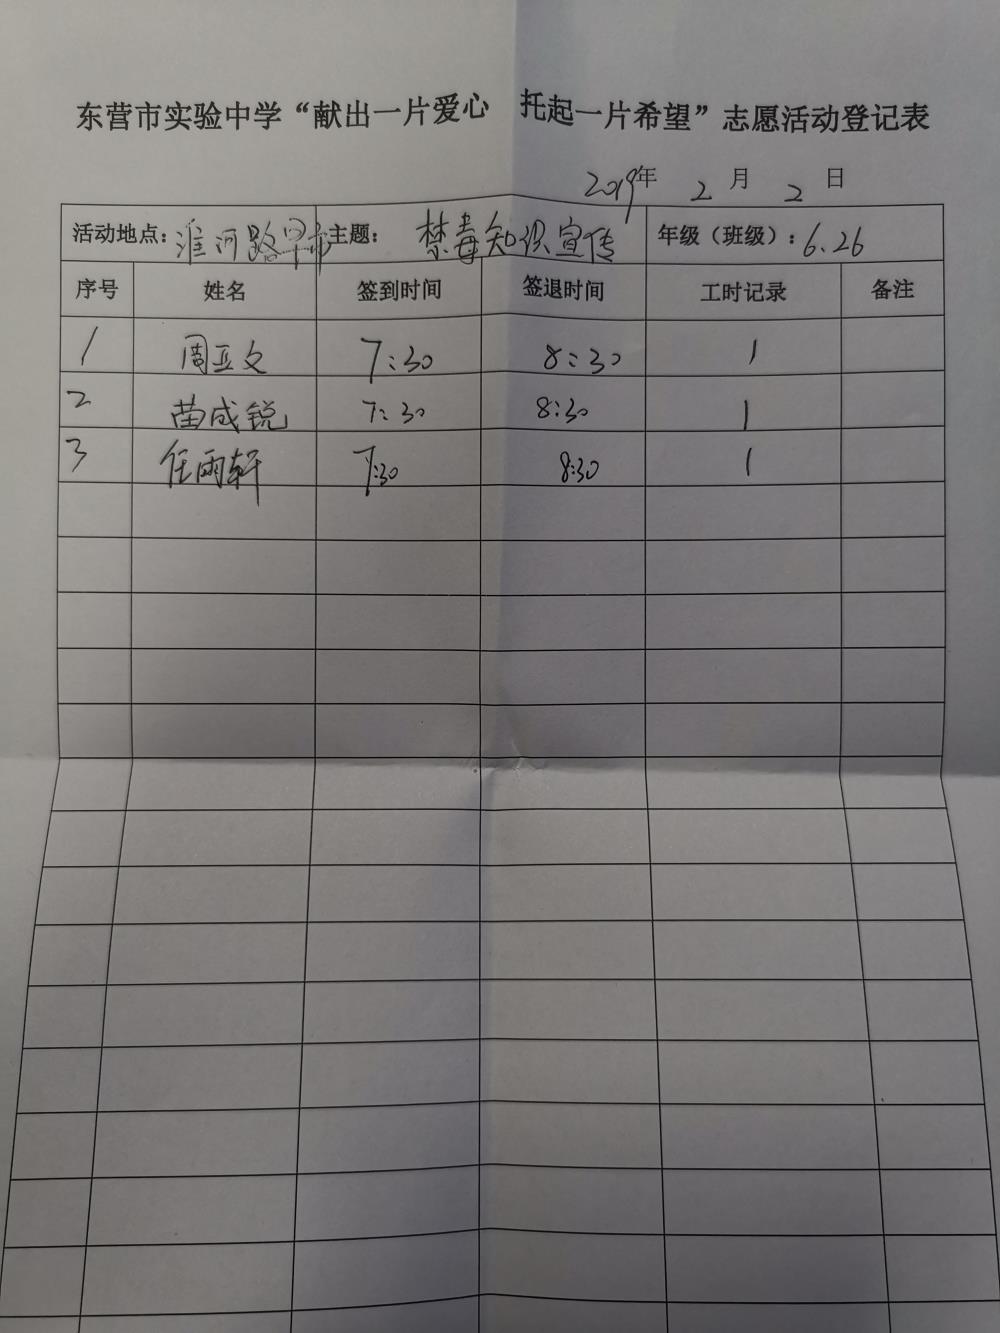 东营市实验中学“献出一片爱心 托起一片希望”志愿活动登记表
2019年 2 月 2 日
活动地点：淮河路早市 主题： 禁毒知识宣传 年级（班级）：6.26
序号 姓名 签到时间 签退时间 工时记录 备注
1 周亚文 7:30 8:30 1
2 苗成锐 7:30 8:30 1
3 任雨轩 7:30 8:30 1